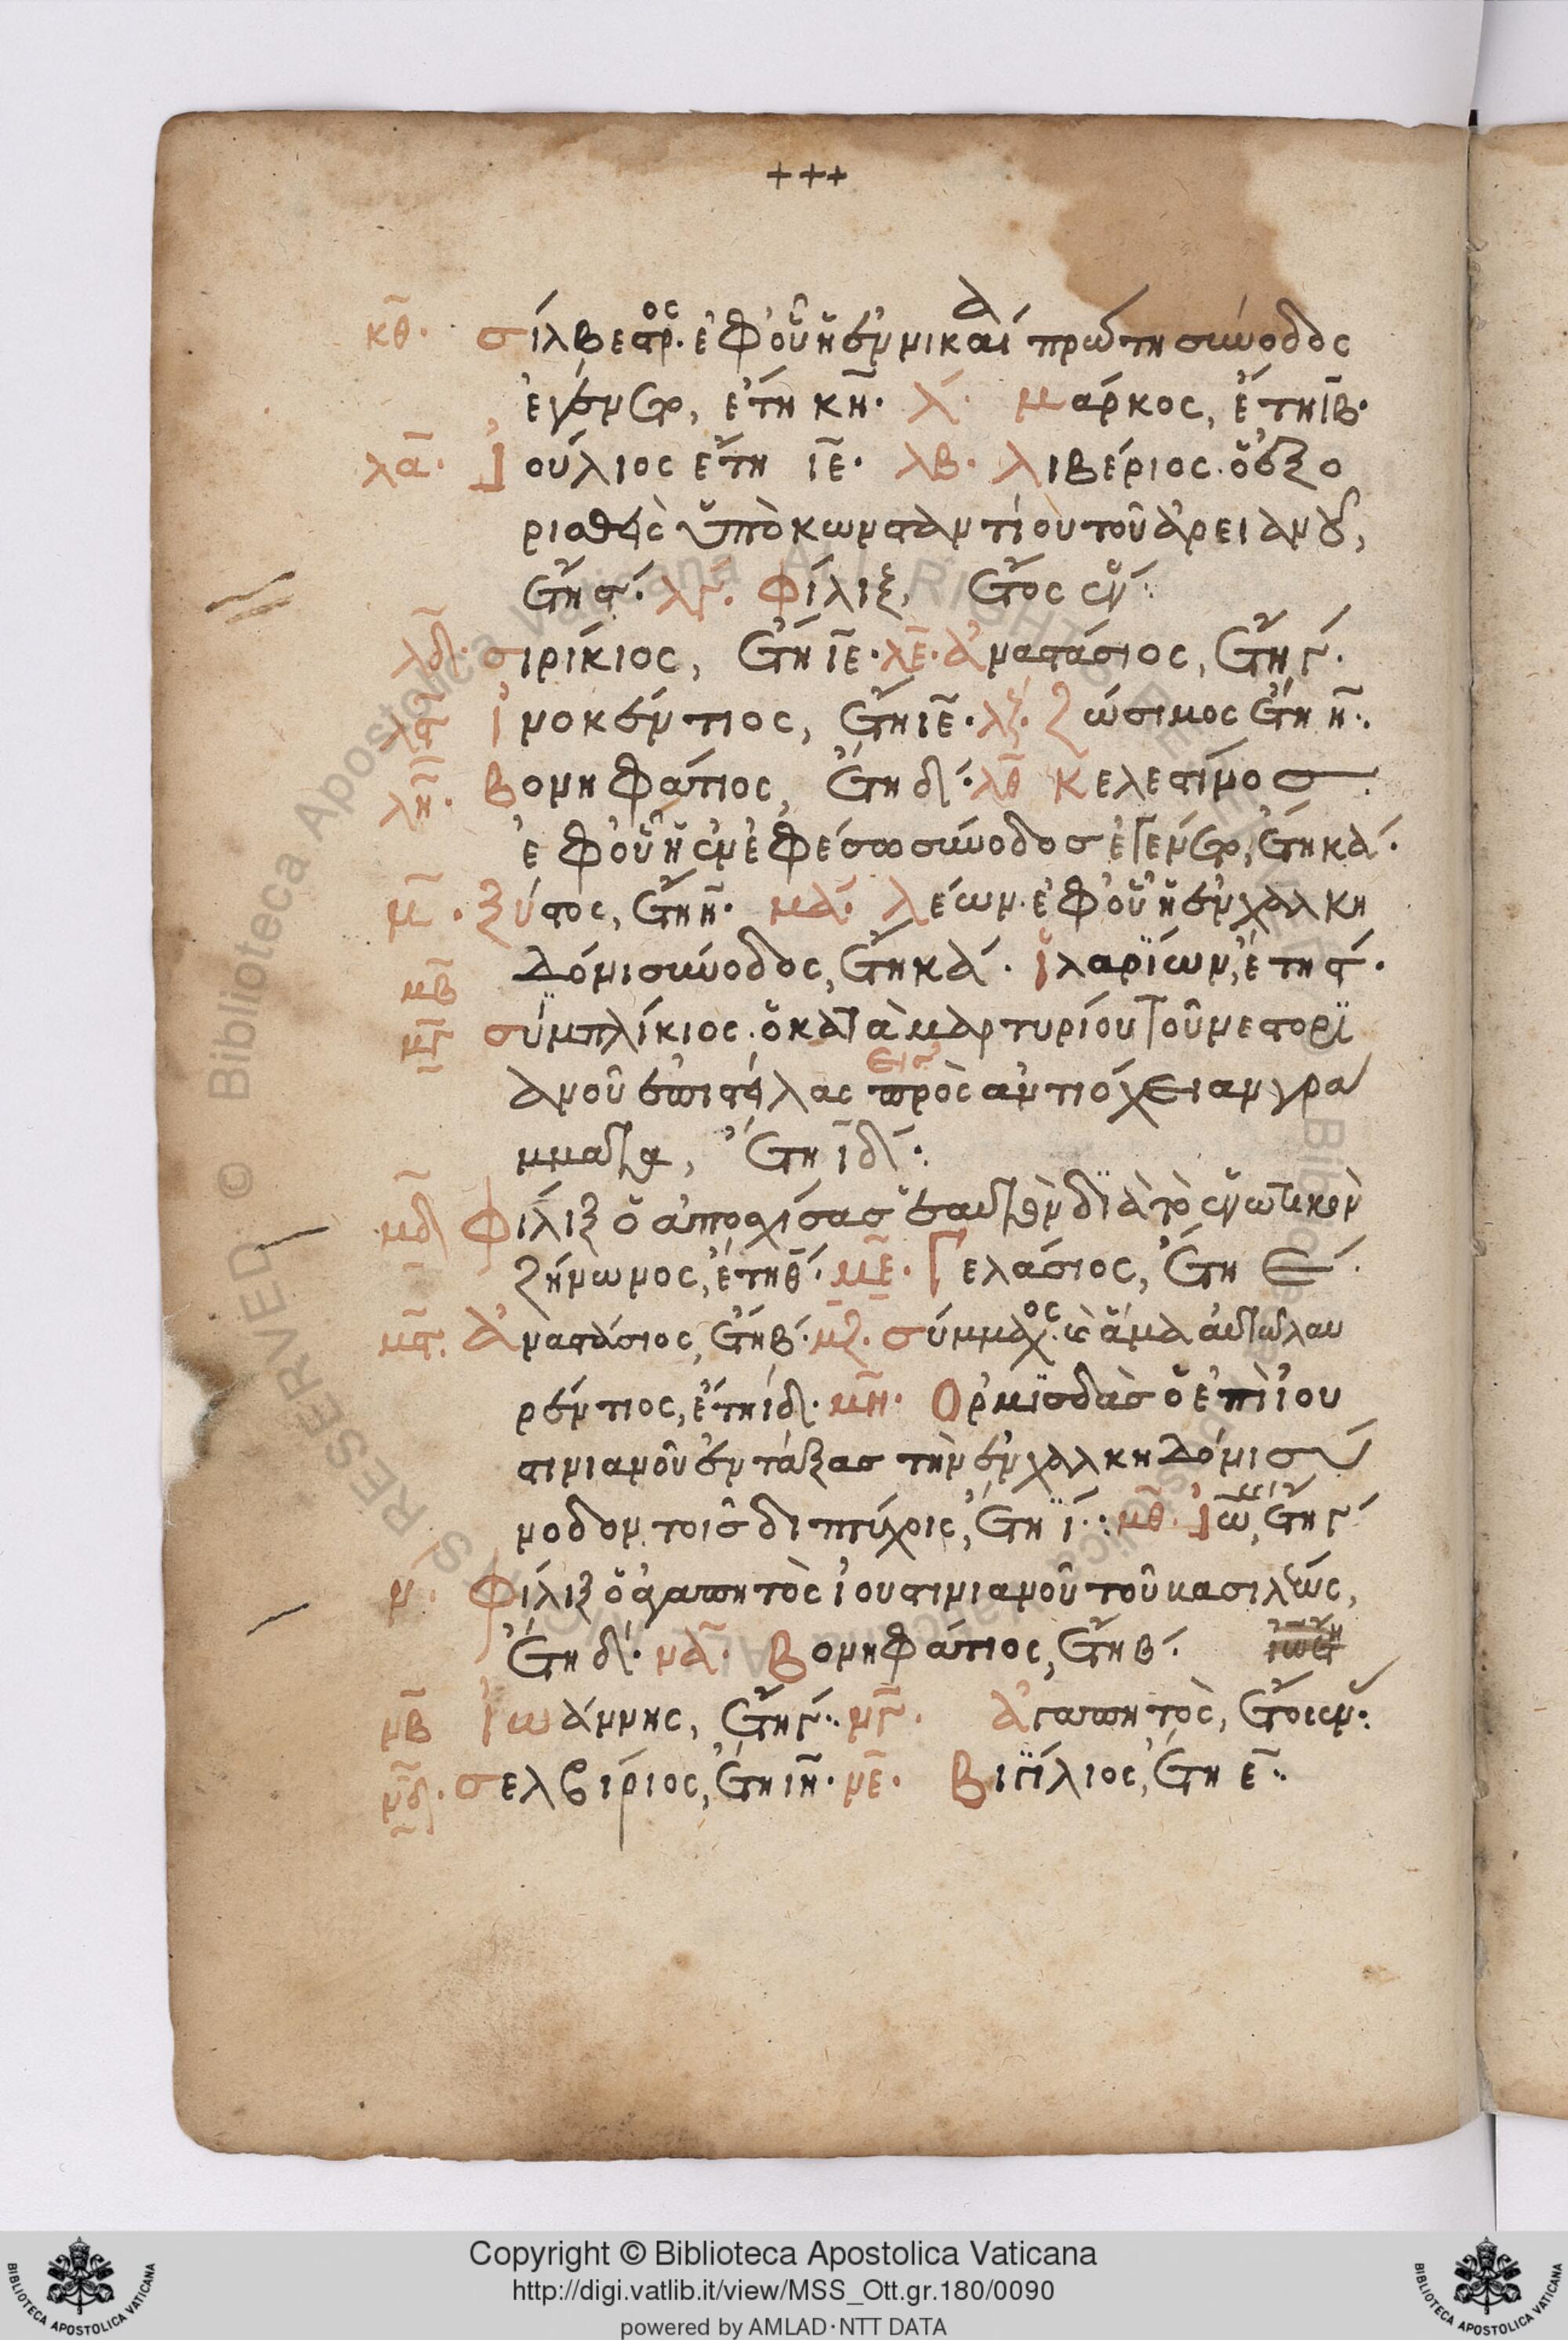 +++
κθ· σίλβεστρος· ἐφ' οὗ ἡ ἐν νικαία πρώτη σύνοδος
ἐγένετο, ἔτη κη· λ· μάρκος, ἔτη ιβ·
λα· Ἰούλιος ἔτη ιε· λβ· λιβέριος· ὁ ἐξο
ρισθεὶς ὑπὸ κωνσταντίου τοῦ ἀρειανοῦ,
ἔτη ϛ· λγ· φίλιξ, ἔτος ἕν·
λδ· σιρίκιος, ἔτη ιε· λε· ἀναστάσιος, ἔτη γ·
λϛ ἰνοκέντιος, ἔτη ιε· λζ· ζώσιμος ἔτη η·
λη· βονηφάτιος, ἔτη δ· λθ κελεστίνος
ἐφ' οὗ ἡ ἐν ἐφέσω σύνοδος ἐγένετο, ἔτη κα·
μ· ξύστος, ἔτη η· μα· λέων· ἐφ' οὗ ἡ ἐν χαλκη
δόνι σύνοδος, ἔτη κα· ἱλαρίων, ἔτη ϛ·
μβ
μγ σύμπλίκιος· ὁ κατὰ μαρτυρίου τοῦ νεστορι
ανοῦ ἐπιστείλας πρὸς ἀντιόχειαν γρα
μματα, ἔτη ιδ·
μδ φίλιξ ὁ ἀποσχίσας ἑαυτὸν διὰ τὸ ἑνωτικὸν
ζήνωνος, ἔτη θ· με· Γελάσιος, ἔτη ε·
μϛ· ἀναστάσιος, ἔτη β· μζ· σύμμαχος· καὶ ἅμα αὐτῶ λαυ
ρέντιος, ἔτη ιδ· μη· Ὁρμίσδας ὁ ἐπὶ ἰου
στινιανοῦ ἐντάξας τὴν ἐν χαλκηδόνι σύ
νοδον τοῖς διπτύχοις, ἔτη ι· μθ· Ἰω, ἔτη γ
ν· φίλιξ ὁ ἀγαπητὸς ἰουστινιανοῦ τοῦ βασιλέως,
ἔτη δ· να· βονηφάτιος, ἔτη β·
νβ Ἰωάννης, ἔτη γ· νγ· ἀγαπητὸς, ἔτος ἕν·
νδ· σελβίριος, ἔτη ιη· νε· βιγίλιος, ἔτη ε·
Copyright © Biblioteca Apostolica Vaticana
http://digi.vatlib.it/view/MSS_Ott.gr.180/0090
powered by AMLAD·NTT DATA
BIBLIOTECA APOSTOLICA VATICANA
BIBLIOTECA APOSTOLICA VATICANA